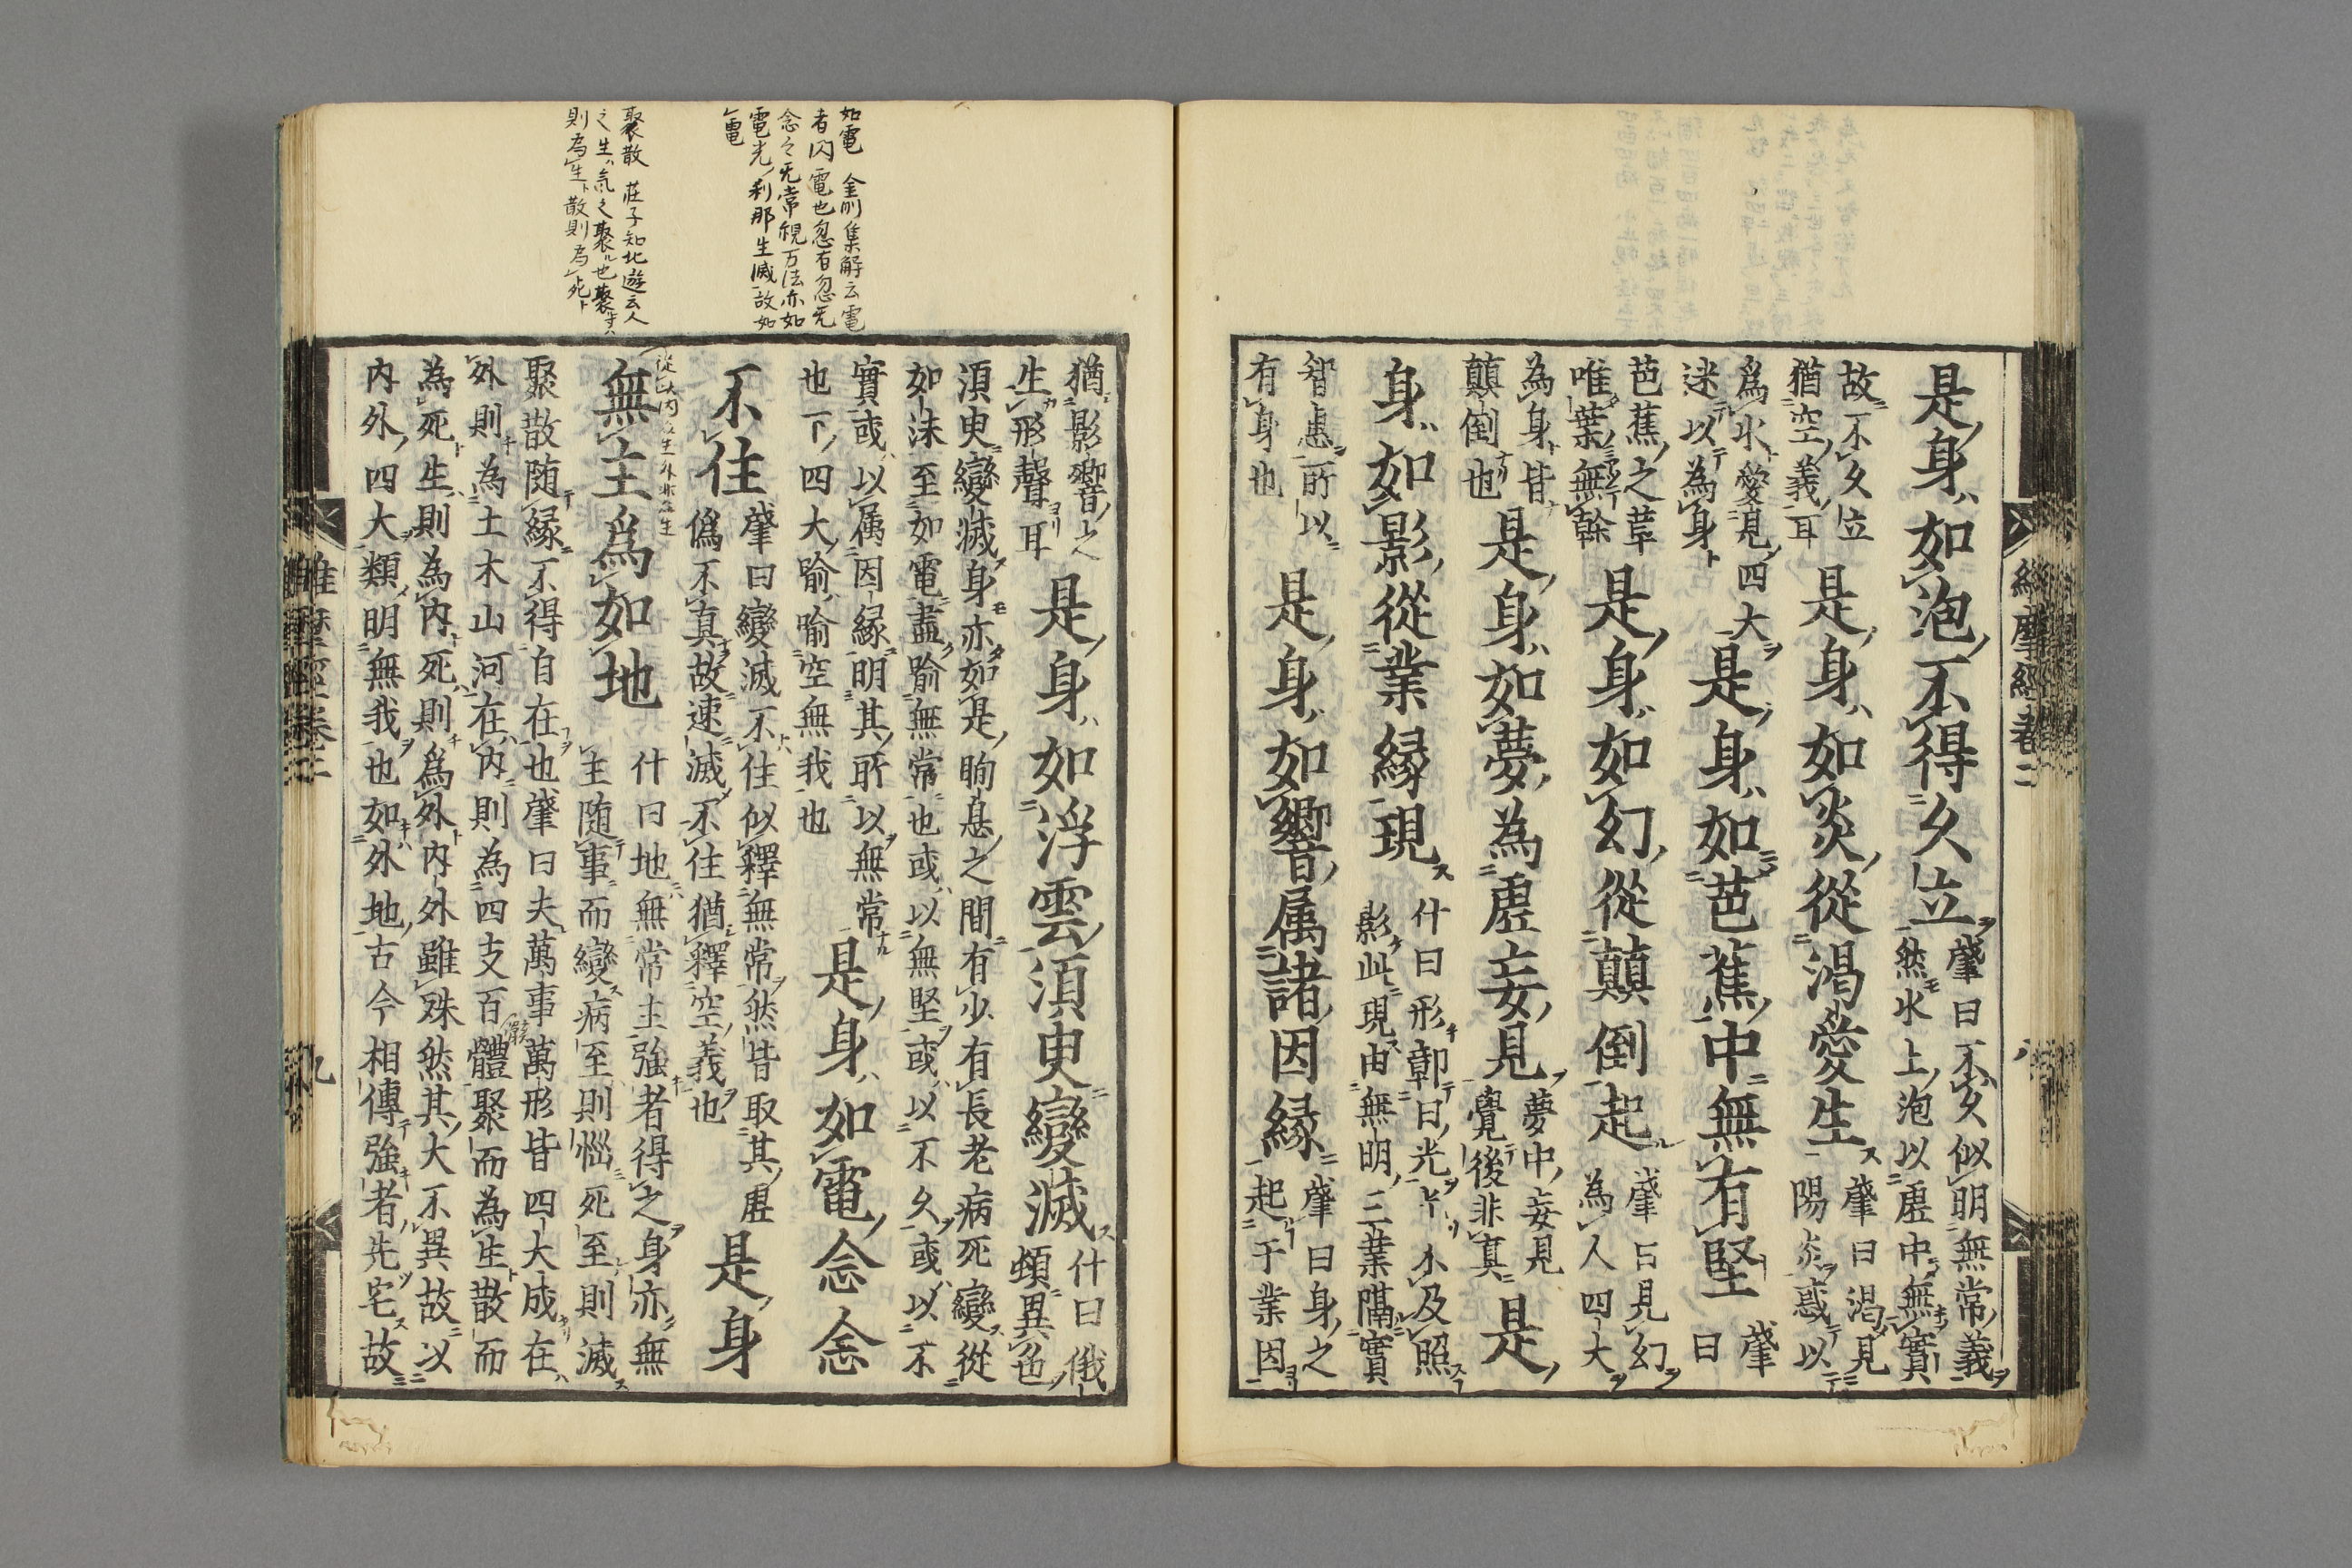 是身如泡不得久立
肇曰不久似明無常義
然水上泡以虛中無實
故不久立
猶空義耳
是身如炎從渴愛生
肇曰渴見
陽炎惑以
為水愛見四大
迷以為身
是身如芭蕉中無有堅
肇
曰
芭蕉之草
唯葉無幹
是身如幻從顛倒起
肇曰見幻
為人四大
為身皆
顛倒也
是身如夢為虛妄見
夢中妄見
覺後非真
是
身如影從業緣現
什曰形鄣日光光不及照
影此現由無明三業隔實
智惠所以
有身也
是身如響属諸因緣
肇曰身之
起于業因
猶影響之
生形聲耳
是身如浮雲須臾變滅
什曰俄
頓異色
須臾變滅身亦如是眴息之間有少有長老病死變從
如沫至如電盡喻無常也或以無堅或以不久或以不
實或以属因緣明其所以無常
也下四大喻喻空無我也
是身如電念念
不住
肇曰變滅不住似釋無常然皆取其虛
偽不真故速滅不住猶釋空義也
是身
無主為如地
什曰地無常主強者得之身亦無
主随事而變病至則惱死至則滅
聚散随緣不得自在也肇曰夫萬事萬形皆四大成在
外則為土木山河在内則為四支百體聚而為生散而
為死生則為内死則為外内外雖殊然其大不異故以
内外四大類明無我也如外地古今相傳強者先宅故
維摩經卷二
九
如電 金剛集解云電
者閃電也忽有忽无
念々无常視万法亦如
電光刹那生滅故如
電
聚散 莊子知北遊云人
之生気之聚也聚
則為生散則為死